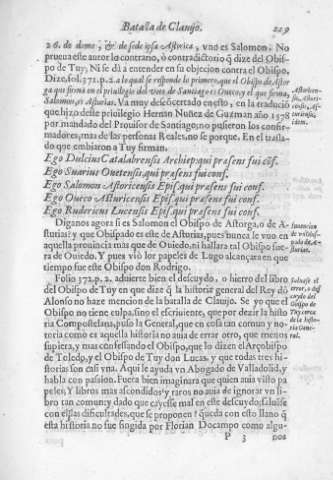 Batalla de Clauijo. 229
26. de domo, & de sede ipsa Astorica, vno es Salomon. No
prueua este autor lo contrario, ò contradictorio q̃ dize del Obis-
po de Tuy, Ni se dà a entender en su objecion contra el Obispo.
Dize, fol. 371. p. 2. a lo qual se responde lo primero, que el Obispo de Astor-
ga que firma en el priuilegio del voto de Santiago es Oueco y el que firma,
Salomon, es Asturias. Va muy desconcertado en esto, en la traduciõ
que hizo deste priuilegio Hernan Nuñez de Guzman año 1578
por mandado del Prouisor de Santiago, no pusieron los confir-
madores, mas de las personas Reales, no se porque. En el trasla-
do que embiaron a Tuy firman.
Ego Dulcius Catalabrensis Archiep: qui præsens fui cõf.
Ego Suarius Ouetensis, qui præsens fui conf.
Ego Salomon Astoricensis Epis. qui præsens fui conf.
Ego Oueco Asturicensis Epis. qui præsens fui conf.
Ego Rudericus Lucensis Epis. qui præsens fui conf.
Diganos agora si es Salomon el Obispo de Astorga, o de A-
sturias? y que Obispado es este de Asturias, pues nunca le vuo en
aquella prouincia mas que de Ouiedo, ni hallara tal Obispo fue-
ra de Ouiedo. Y pues vio los papeles de Lugo alcançara en que
tiempo fue este Obispo don Rodrigo.
Folio 372. p. 2. aduierte bien el descuydo, o hierro del libro
del Obispo de Tuy en que dize q̃ la historia general del Rey dõ
Alonso no haze mencion de la batalla de Clauijo. Se yo que el
Obispo no tiene culpa, sino el escriuiente, que por dezir la histo
ria Compostelana, puso la General, que en cosa tan comun y no-
toria como es aquella historia no auia de errar otro, que menos
supiera, y mas confessando el Obispo, que lo dizen el Arçobispo
de Toledo, y el Obispo de Tuy don Lucas, y que todas tres hi-
storias son casi vna. Aqui le ayuda vn Abogado de Valladolid, y
habla con passion. Fuera bien imaginara que quien auia visto pa-
peles, Y libros mas ascondidos, y raros no auia de ignorar vn li-
bro tan comun; y dado que cayesse mal en este descuydo, saluasse
con essas dificultades, que se proponen? queda con esto llano q̃
esta historia no fue fingida por Florian Docampo como algu-
P 3 nos